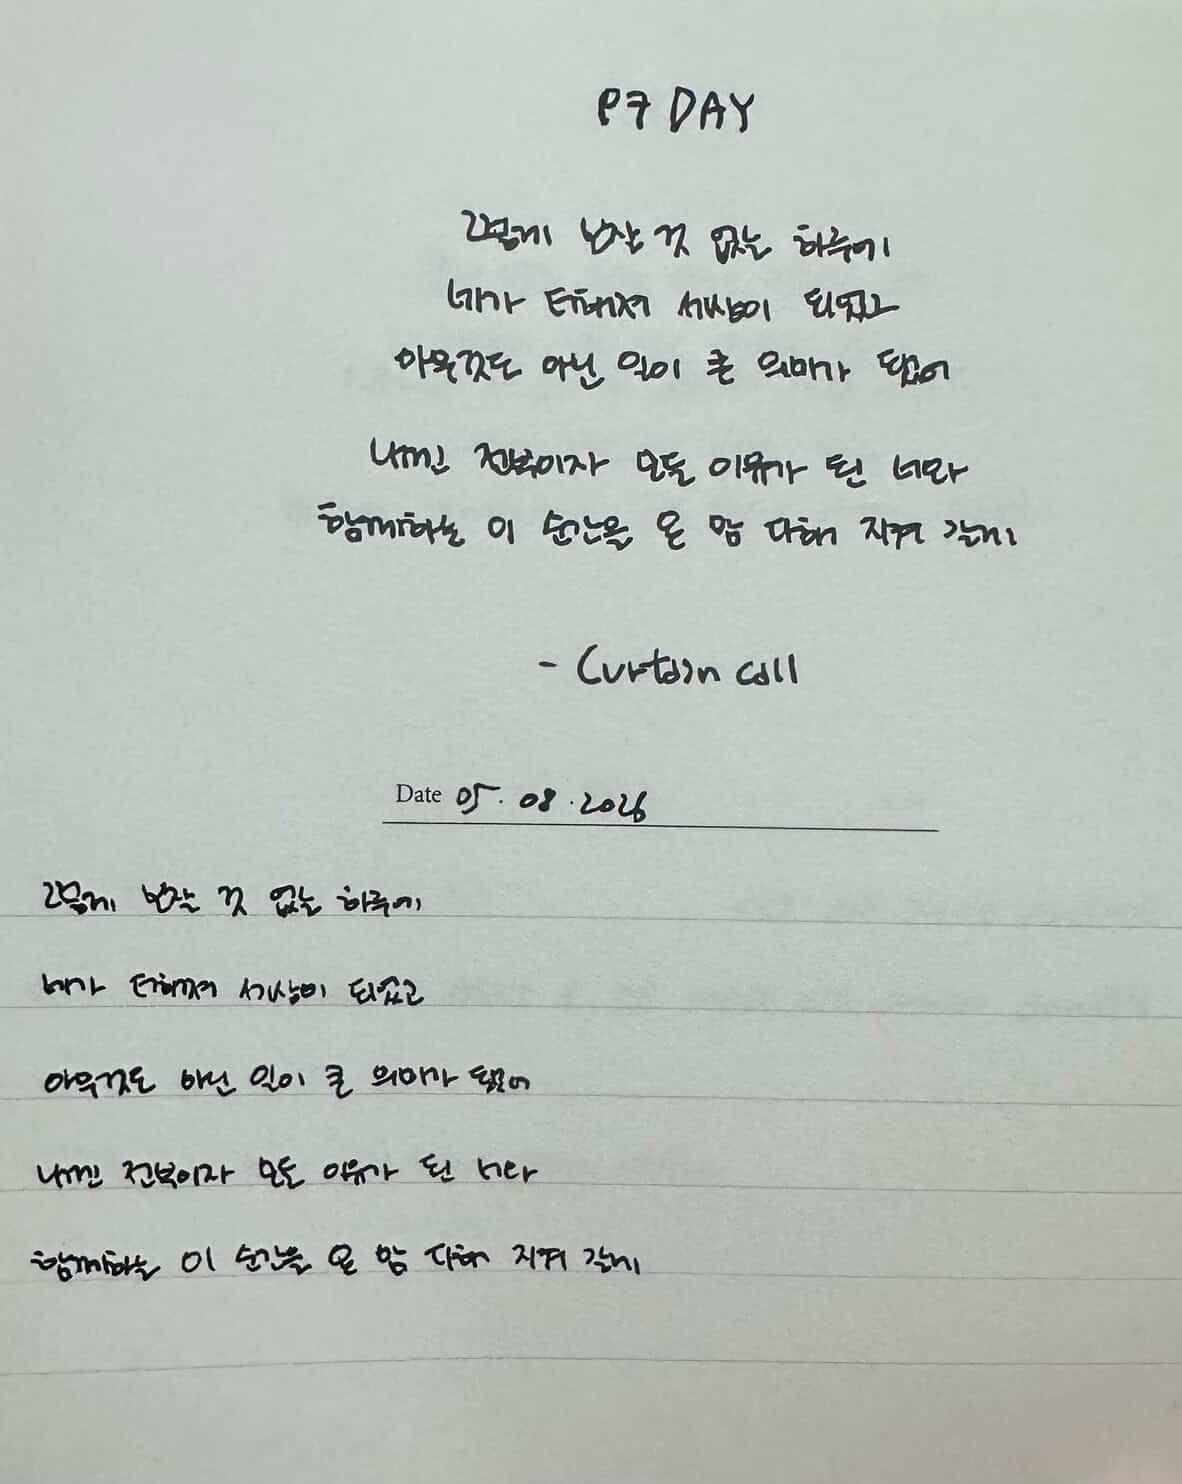 P7 DAY
그렇게 보잘 것 없는 하루에
네가 더해져 세상이 되었고
아무것도 아닌 일이 큰 의미가 됐어
내겐 전부이자 모든 이유가 된 너라
함께하는 이 순간을 온 맘 다해 지켜 갈게
- Curtain call
Date 05.08.2026
그렇게 보잘 것 없는 하루에
네가 더해져 세상이 되었고
아무것도 아닌 일이 큰 의미가 됐어
내겐 전부이자 모든 이유가 된 너라
함께하는 이 순간을 온 맘 다해 지켜 갈게